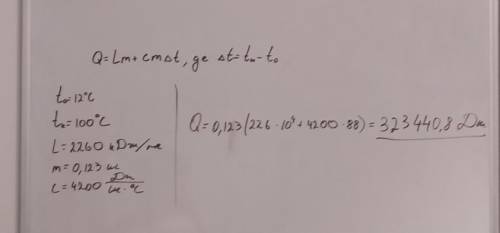 Q=Lm+cmΔt, де Δt=tк-t₀
t₀=12°C
tк=100°C
L=2260 кДж/кг
m=0,123 кг
c=4200 Дж/кг·°C
Q=0,123(226·10⁴+4200·88)=323440,8 Дж